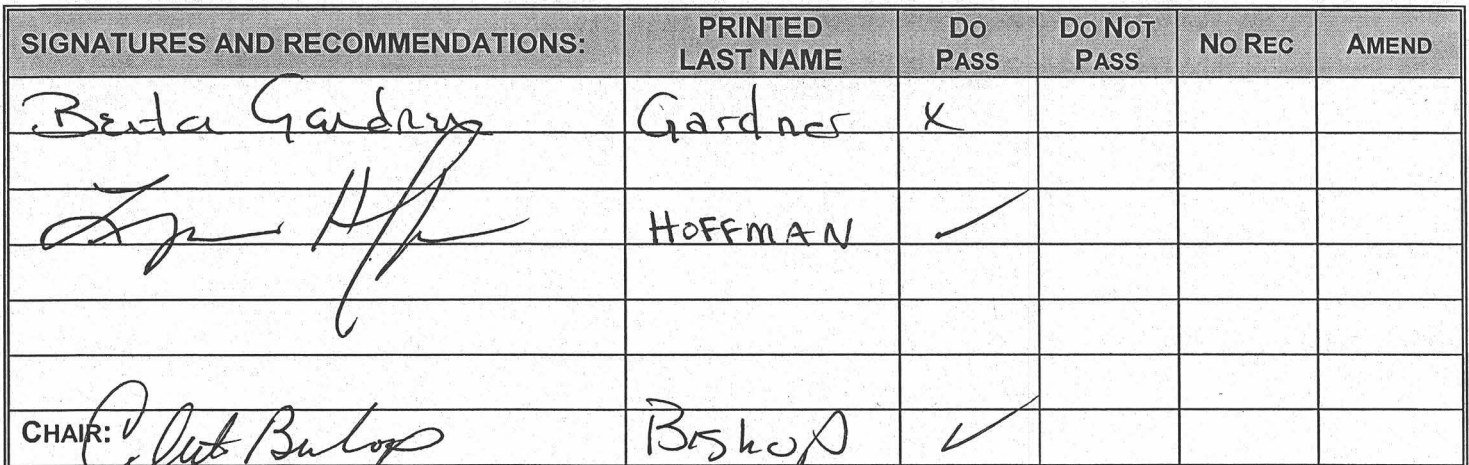 SIGNATURES AND RECOMMENDATIONS: PRINTED LAST NAME DO PASS DO NOT PASS NO REC AMEND
Berta Gardner Gardner x
HOFFMAN ✓
CHAIR: Bishop Bishop ✓